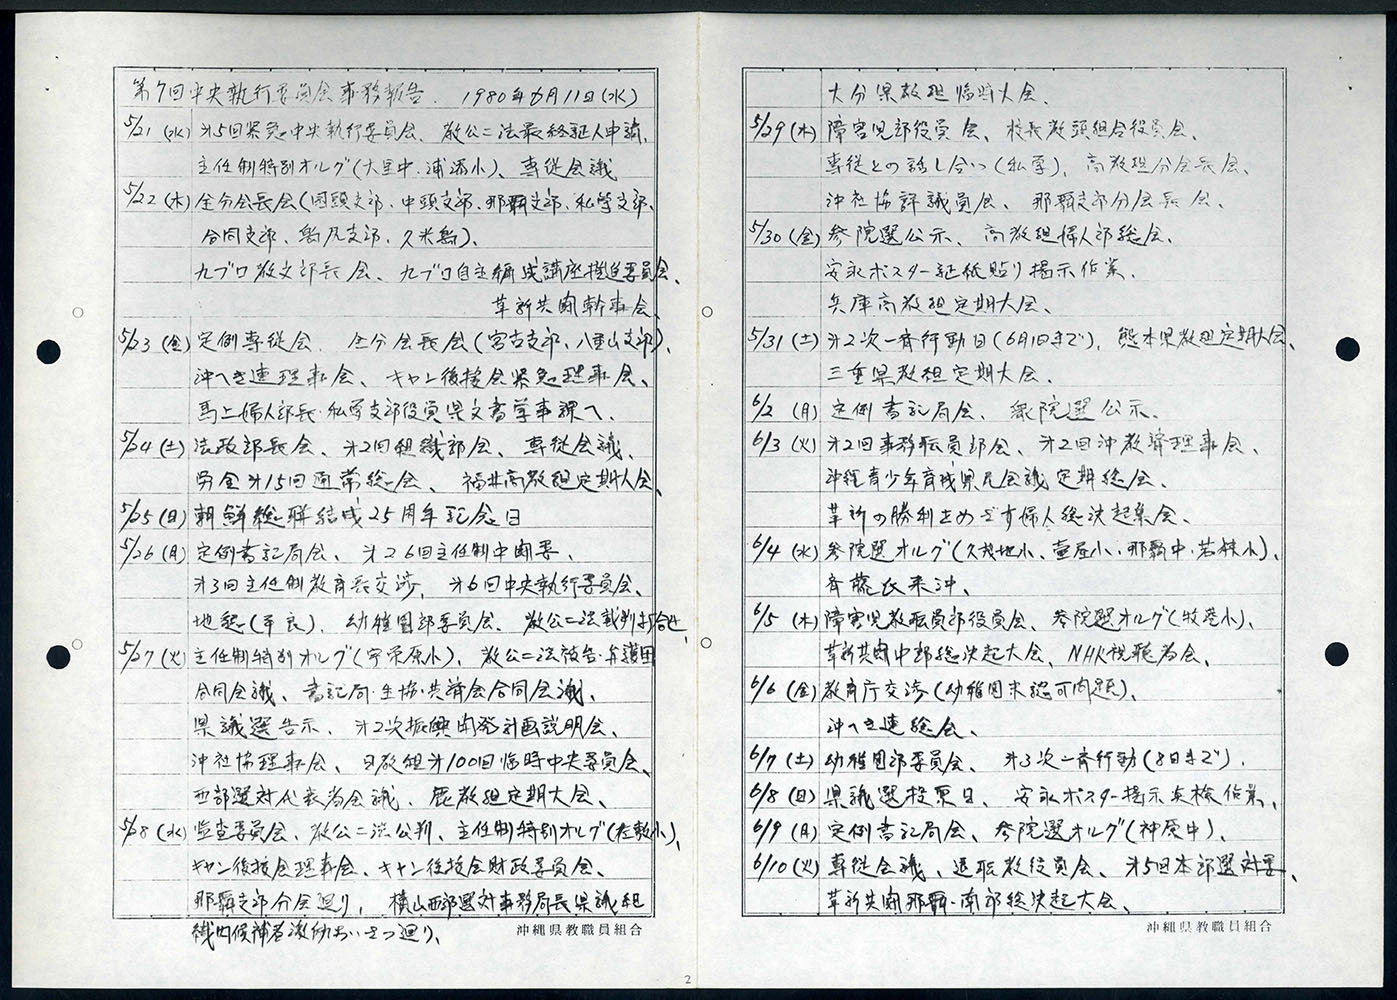 第7回中央執行委員会事務報告. 1980年6月11日(水)
5/21(水) 才5回緊急中央執行委員会、教公二法最終証人申請、
主任制特別オルグ(大里中、浦添小)、専従会議
5/22(木) 全分会長会(国頭支部、中頭支部、那覇支部、私学支部、
合同支部、島尻支部、久米島)、
九ブロ教文部長会、九ブロ自主編成講座推進委員会、
革新共闘幹事会
5/23(金) 定例専従会、全分会長会(宮古支部、八重山支部)、
沖へき連理事会、キャン後援会緊急理事会、
馬上婦人部長・私学支部役員県文書学事課へ、
5/24(土) 法政部長会、才2回組織部会、専従会議、
労金才15回通常総会、福井高教組定期大会、
5/25(日) 朝鮮総聯結成25周年記念日
5/26(月) 定例書記局会、才26回主任制中闘委、
才3回主任制教育長交渉、才6回中央執行委員会、
地懇(平良)、幼稚園部委員会、教公二法裁判打合せ、
5/27(火) 主任制特別オルグ(宇栄原小)、教公二法被告・弁護団
合同会議、書記局・生協・共済会合同会議、
県議選告示、才2次振興開発計画説明会、
沖社協理事会、日教組才100回臨時中央委員会、
西部選対代表者会議、鹿教組定期大会、
5/28(水) 監査委員会、教公二法公判、主任制特別オルグ(佐敷小)、
キャン後援会理事会、キャン後援会財政委員会、
那覇支部分会廻り、横山西部選対事務局長県議組
織内候補者激励あいさつ廻り、
沖縄県教職員組合
大分県教組臨時大会、
5/29(木) 障害児部役員会、校長教頭組合役員会、
専従との話し合い(私学)、高教組分会長会、
沖社協評議員会、那覇支部分会長会、
5/30(金) 参院選公示、高教組婦人部総会、
安永ポスター証紙貼り掲示作業、
兵庫高教組定期大会、
5/31(土) 才2次一斉行動日(6月1日まで)、熊本県教組定期大会、
三重県教組定期大会、
6/2(月) 定例書記局会、衆院選公示、
6/3(火) 才2回事務職員部会、才2回沖教済理事会、
沖縄青少年育成県民会議定期総会、
革新の勝利をめざす婦人総決起集会、
6/4(水) 参院選オルグ(久茂地小、壷屋小、那覇中、若狭小)、
斉藤氏来沖、
6/5(木) 障害児教職員部役員会、参院選オルグ(牧港小)、
革新共闘中部総決起大会、NHK視聴者会、
6/6(金) 教育庁交渉(幼稚園未認可問題)、
沖へき連総会、
6/7(土) 幼稚園部委員会、才3次一斉行動(8日まで)、
6/8(日) 県議選投票日、安永ポスター掲示点検作業、
6/9(月) 定例書記局会、参院選オルグ(神原中)、
6/10(火) 専従会議、退職教役員会、才5回本部選対委、
革新共闘那覇・南部総決起大会、
沖縄県教職員組合
2